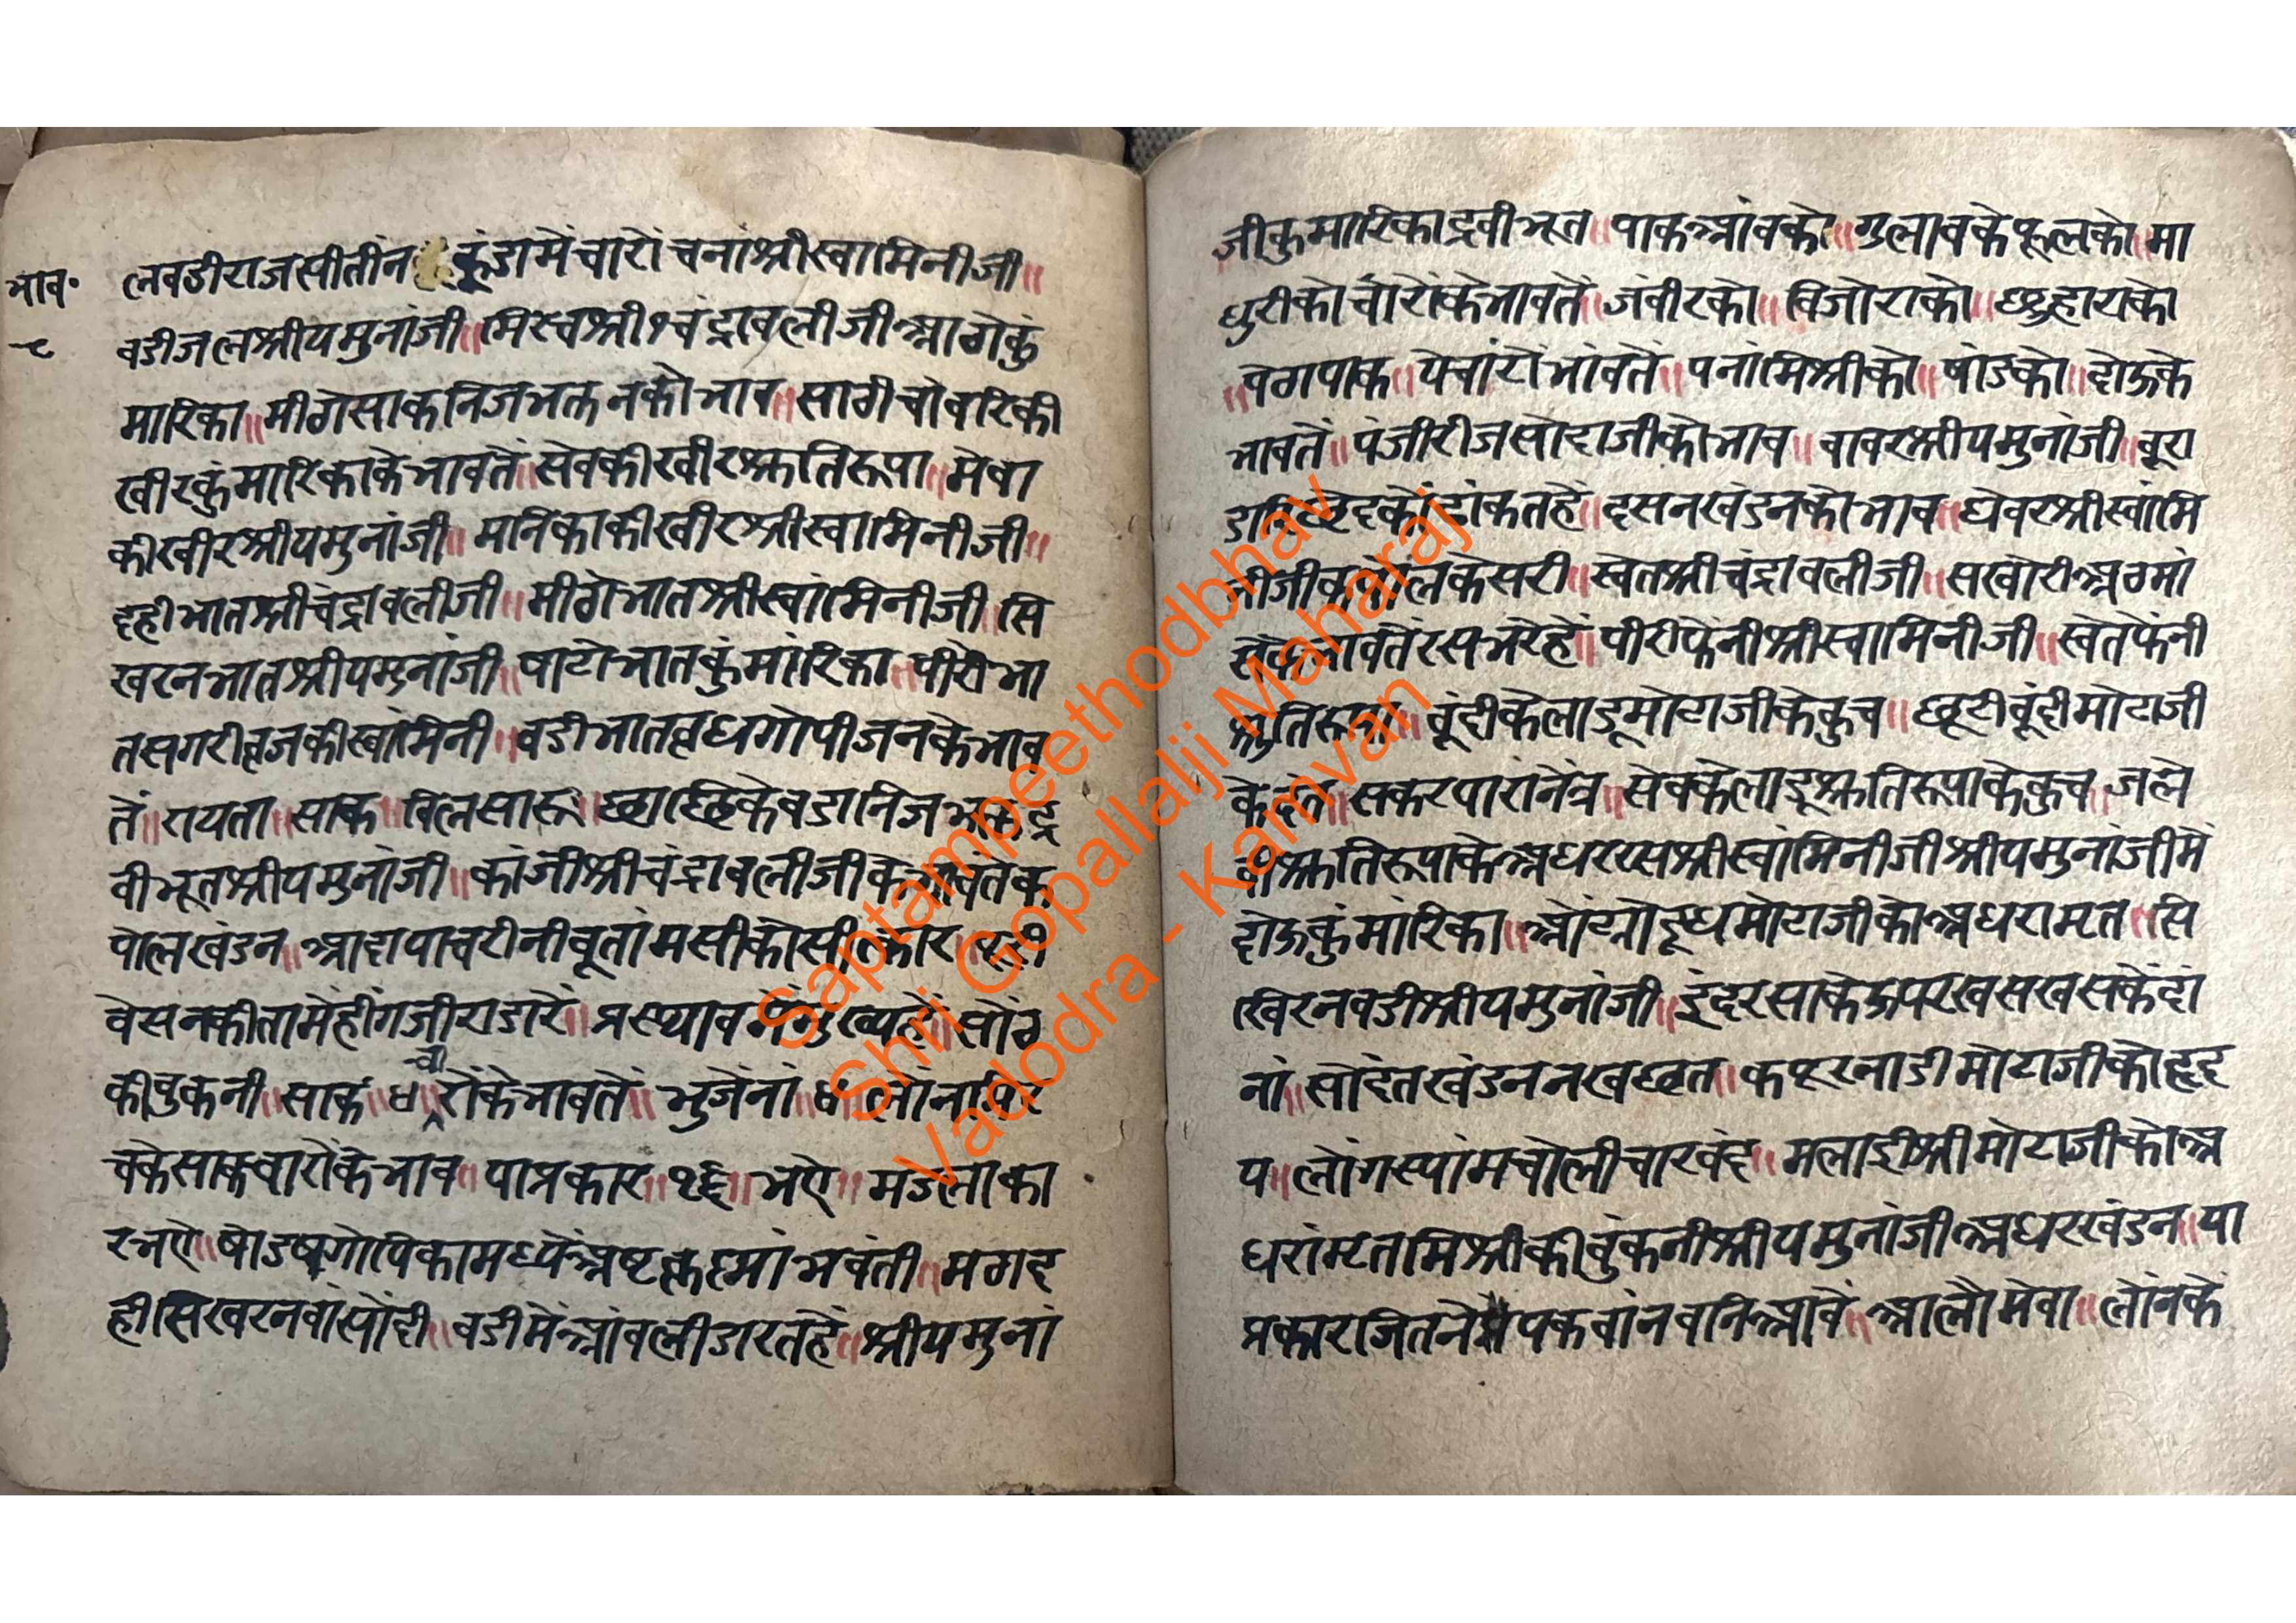 भाव॰
लवडीराजसीतीन कुंडामेंचारोंचनांश्रीस्वामिनीजी॥
वडीजलश्रीयमुनांजी॥मिरचश्रीचंद्रावलीजीआगेकुं
मारिका॥मीठोसाकनिजभक्तनकोभाव॥साठीचोवरिकी
खीरकुंमारिकाकेभावतें॥सेवकीखीरश्रुतिरूपा॥मेवा
कीखीरश्रीयमुनांजी॥मनिकाकीखीरश्रीस्वामिनीजी॥
दहीभातश्रीचंद्रावलीजी॥मीठोभातश्रीस्वांमिनीजी॥सि
खरनभातश्रीयमुनांजी॥षाटोभातकुंमांरिका॥पीरोभा
तसगरीव्रजकीस्वांमिनी॥वडीभातव्रधगोपीजनकेभाव
तें॥रायता॥साक॥विलसारू॥छाछिकेवडानिज
वीभूतश्रीयमुनांजी॥कांजीश्रीचंद्रावलीजीके
पोलखंडन॥आदापाचरीनीबूतांमसीकोसीत्कार॥
वेसनकीतामेंहींगजीराडारें॥प्रस्थाव सोंठ
कीवुकनी॥साकं॥चारोंकेभावतें॥भुजेनां॥
चकेसाकचारोंकेभाव॥पात्रकार॥१६॥भऐ॥मंडलाका
रभऐ॥षोडषगोपिकामध्येअष्टकृष्मांभवंती॥मठादृ
हीसिखरनवांसोंदी॥वडीमेंआंवलीडारतहें॥श्रीयमुनां
जीकुमारिकाद्रवीभूत॥पाकआंवको॥गुलावकेफूलको॥मा
धुरीकोचारोंकेभावतें॥जंवीरको॥विजोराको॥छुहाराको
॥वेगपाक॥येचांरोंभांवतें॥पनांमिश्रीको॥षांडको॥दोऊके
भावतें॥पंजीरीजसोदाजीकोभाव॥वावरश्रीयमुनांजी॥बूरा
दसनखंडनकोभाव॥घेवरश्रीस्वांमि
नीजीकपोलकेसरी॥स्वेतश्रीचंद्रावलीजी॥सखोरीअठमां
रसभरेहें॥पीरीफेनीश्रीस्वामिनीजी॥स्वेतफेंनी
श्रुतिरूपा॥बूंदीकेलाडूमोटाजीकेकुच॥छूटीबूंदीमोटाजी
केदंत॥सकरपारानेंत्र॥सेवकेलाडूश्रुतिरूपाकेकुच॥जले
वीश्रुतिरूपाकेअधररसश्रीस्वांमिनीजीश्रीयमुनांजीमें
दोऊकुंमांरिका॥ओट्योदूधमोटाजीकोअधरामृत॥सि
खिरनवडीश्रीयमुनांजी॥इंदरसाकेऊपरखसखसकेदां
नां॥सोदंतखंडननखछत॥कपूरनाडीमोटाजीकोहृद
य॥लोंगस्यांमचोलीचारवंद॥मलाईश्रीमोटाजीकोअ
धरांमृतमिश्रीकीवुंकनीश्रीयमुनांजीअधरखंडन॥या
प्रकारजितनेपकवांनवनिआवे॥आलोमेवा॥लोंनके
Saptampeethodbhav
Shri Gopallalji Maharaj
Vadodra - Kamvan